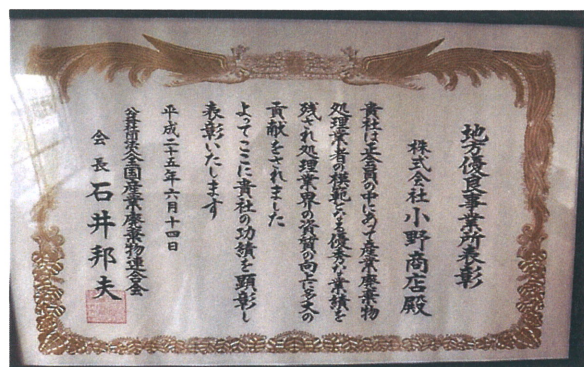 地方優良事業所表彰
株式会社小野商店殿
貴社は正会員の中にあって産業廃棄物
処理業者の模範となる優秀な業績を
残され処理業界の資質の向上に多大の
貢献をされました
よってここに貴社の功績を顕彰し
表彰いたします
平成二十五年六月十四日
公益社団法人全国産業廃棄物連合会
会長 石井邦夫